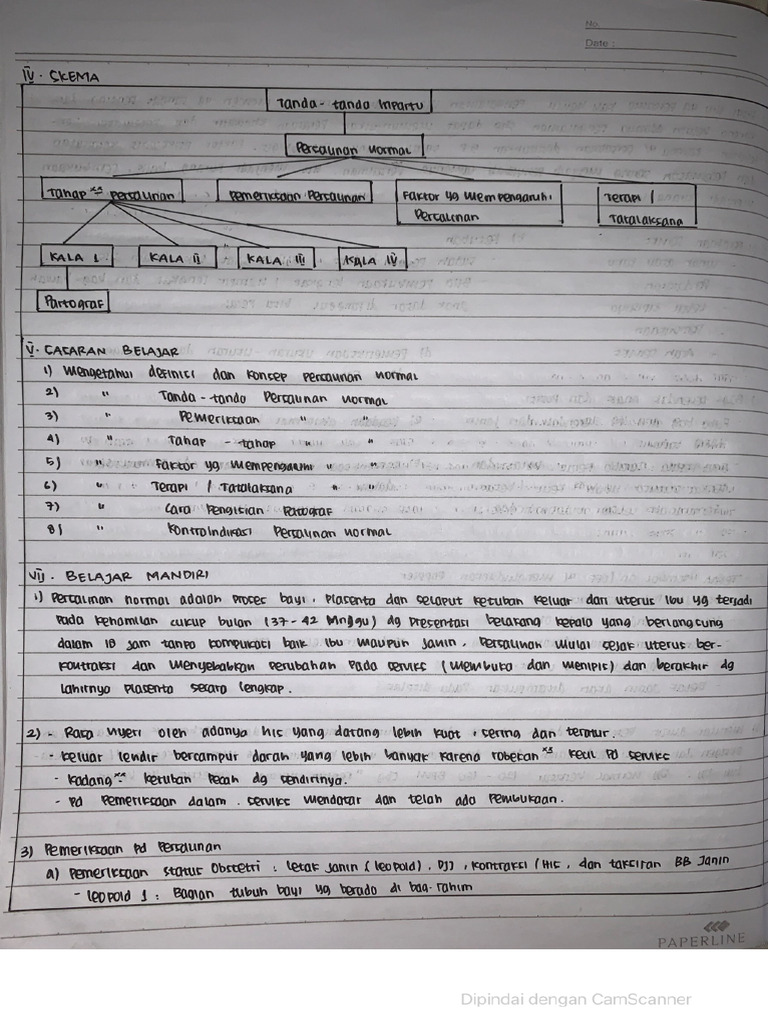 No.
Date :
IV. SKEMA
Tanda-tanda Inpartu
Persalinan Normal
Tahap xs Persalinan
Pemeriksaan Persalinan
Faktor yg Mempengaruhi
Persalinan
Terapi /
Tatalaksana
KALA I
KALA II
KALA III
KALA IV
Partograf
V. SASARAN BELAJAR
1) Mengetahui definisi dan Konsep Persalinan normal
2) " Tanda-tanda Persalinan normal
3) " Pemeriksaan " "
4) " Tahap - tahap " "
5) " Faktor yg Mempengaruhi " "
6) " Terapi / Tatalaksana " "
7) " Cara Pengisian Patograf
8) " Kontraindikasi Persalinan normal
VII. BELAJAR MANDIRI
1) Persalinan normal adalah Proses bayi, Plasenta dan selaput ketuban keluar dari uterus Ibu yg terjadi
Pada Kehamilan cukup bulan (37-42 Minggu) dg Presentasi belakang kepala yang berlangsung
dalam 18 jam tanpa komplikasi baik Ibu maupun Janin. Persalinan Mulai sejak uterus ber-
kontraksi dan Menyebabkan Perubahan Pada serviks (Membuka dan Menipis) dan berakhir dg
lahirnya Plasenta secara lengkap.
2) - Rasa nyeri oleh adanya his yang datang lebih kuat, sering dan teratur.
- keluar lendir bercampur darah yang lebih banyak karena robekan xs kecil Pd serviks
- kadang xs ketuban Pecah dg sendirinya.
- Pd Pemeriksaan dalam, serviks Mendatar dan telah ada Pembukaan.
3) Pemeriksaan Pd Persalinan
a) Pemeriksaan status Obstetri : letak janin (leopold), DJJ, kontraksi/His, dan taksiran BB Janin
- leopold 1 : Bagian tubuh bayi yg berada di bag. rahim
PAPERLINE
Dipindai dengan CamScanner